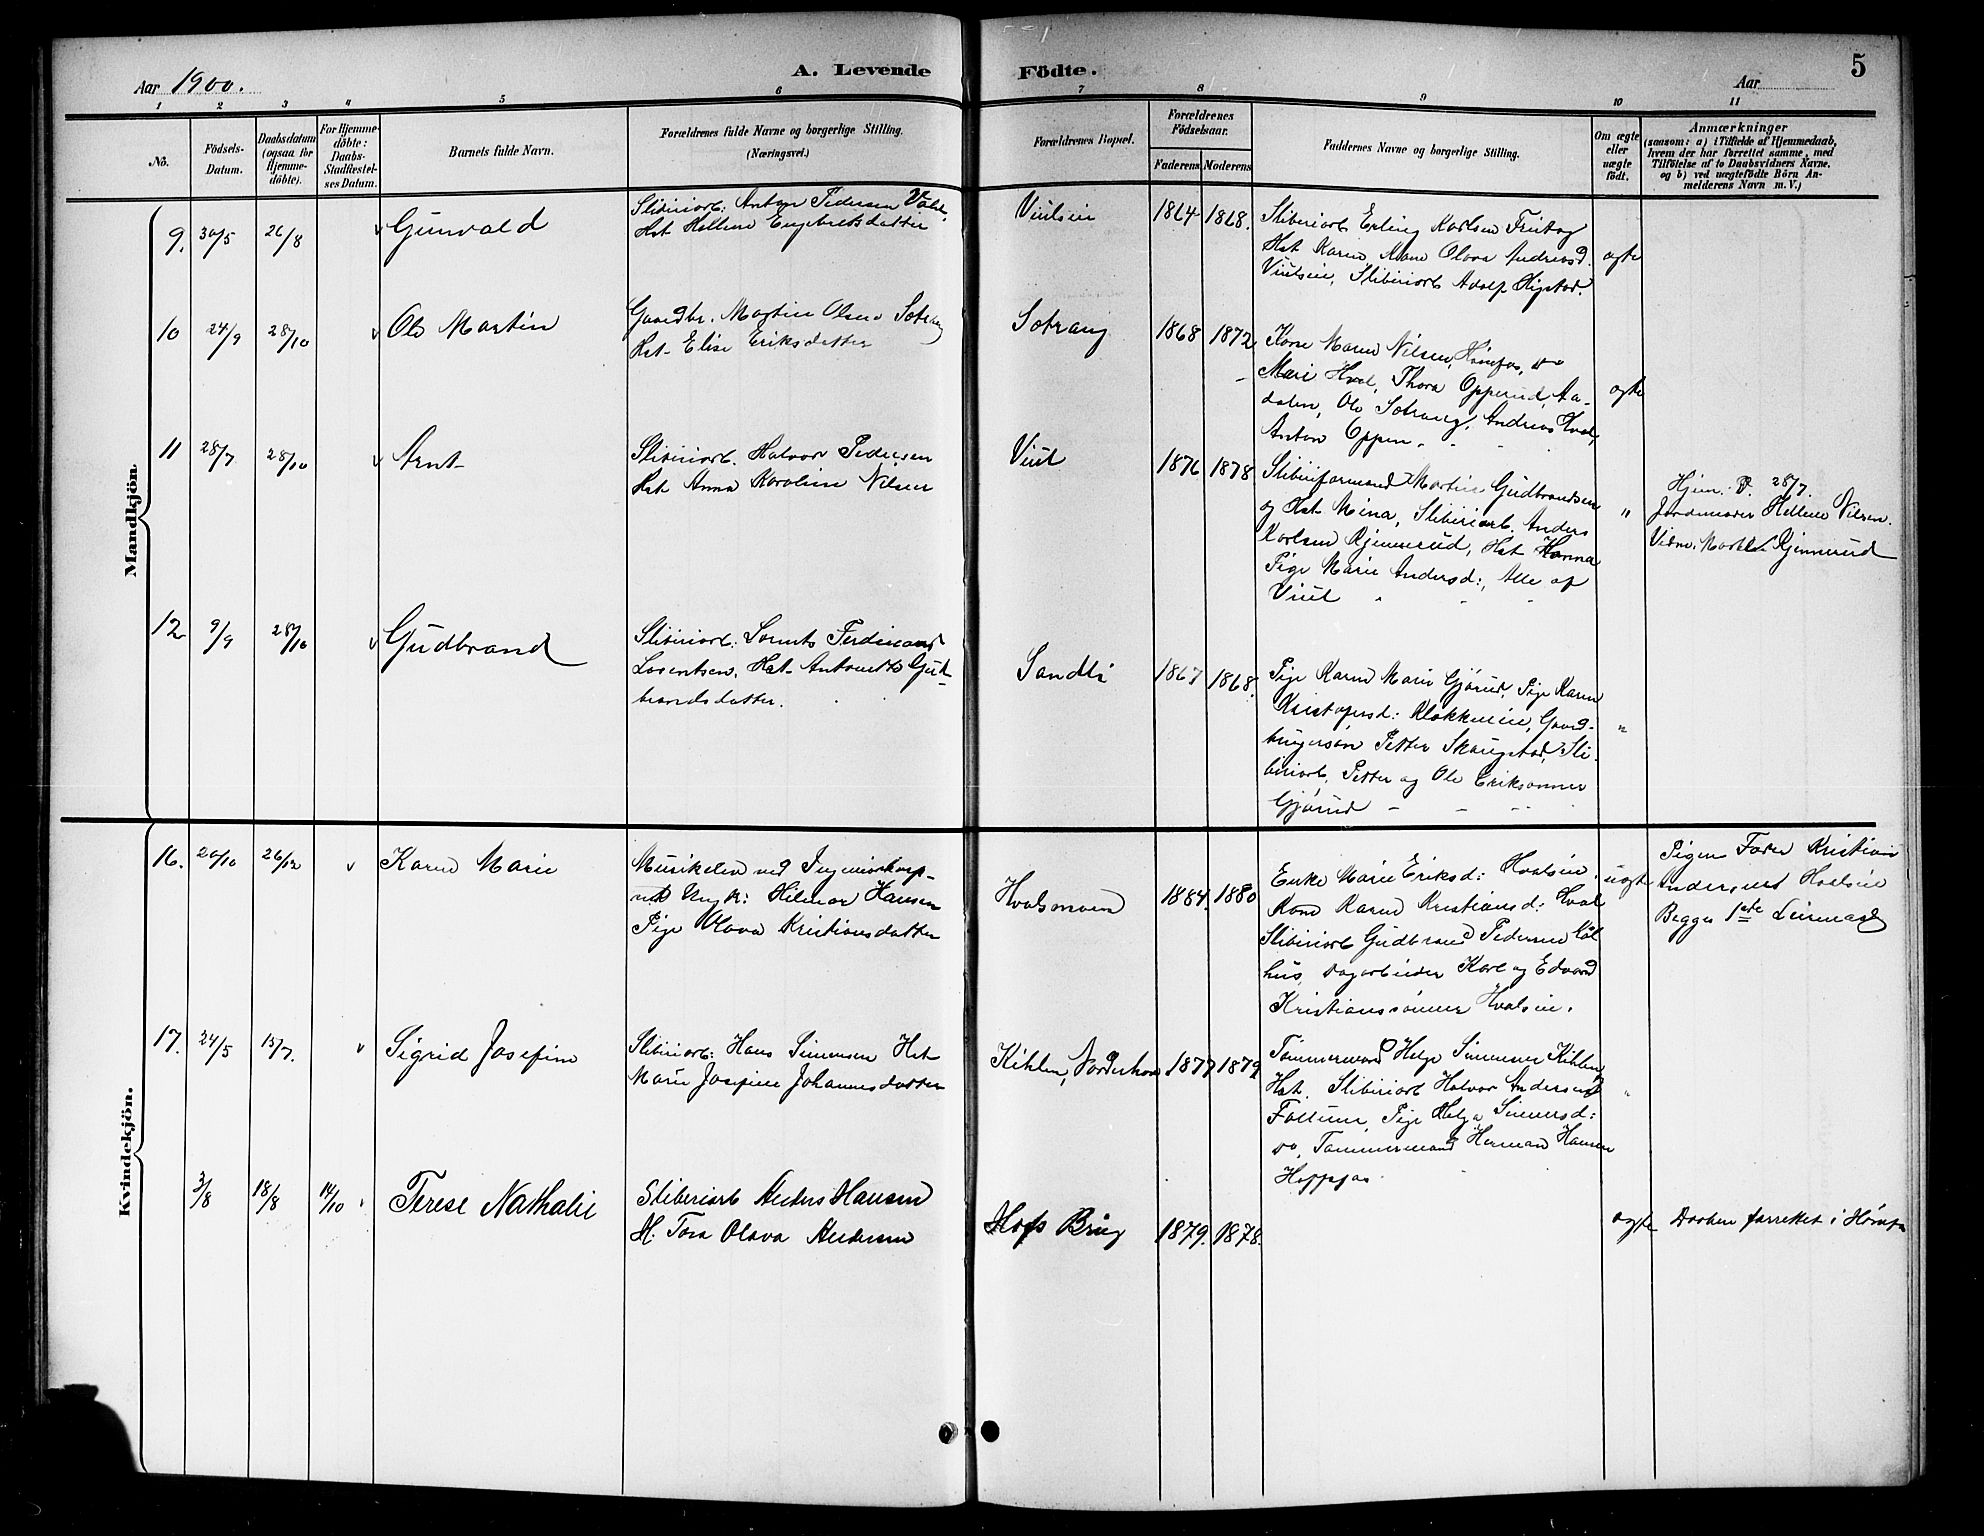 Aar 1900.
A. Levende Födte.
Aar
5
1 2 3 4 5 6 7 8 9 10 11
No.
Födsels-Datum.
Daabsdatum (ogsaa for Hjemme-döbte).
For Hjemme-döbte: Daabs-Stadfæstel-ses Datum.
Barnets fulde Navn.
Forældrenes fulde Navne og borgerlige Stilling. (Næringsvei.)
Forældrenes Bopæl.
Forældrenes Födselsaar.
Faderens Moderens
Faddernes Navne og borgerlige Stilling.
Om ægte eller uægte födt.
Anmærkninger
(saasom: a) i Tilfælde af Hjemmedaab,
hvem der har forrettet samme, med
Tilföielse af to Daabsvidners Navne,
og b) ved uægtefödte Börn An-
melderens Navn m. V.)
Mandkjön.
9. 30/5 26/8 Gunvald
Sliberiarb: Anton Pedersen
Hst Hellene Engebretsdatter
1864 1868.
Sliberiarb Erling Karlsen
Hst Karen Kone Olava Andreasd.
Sliberiarb Adolf
ægte
10 24/9 28/10 Ole Martin
Gaardbr. Martin Olsen Sotrang
Hst. Elise Eriksdatter
Sotrang
1868 1872
Kone Maren Nilsen, Hønefos, do
Mari Hval, Thora Opperud, Aa-
dalen, Ole Sotrang, Andreas Hval,
Anton Oppen.
ægte
11 28/7 28/10 Arnt
Sliberiarb. Halvor Pedersen
Hst Anna Karoline Nilsen
Viul
1876 1878
Sliberiformand Martin Gudbrandsen
og Hst Mina, Sliberiarb. Anders
Karlsen Rjennerud, Hst Hanna
Pige Marie Andersd:, Alle af
Viul
"
Hjem. D. 28/7.
Jordemoder Hellene Nilsen.
Rjennerud
12 9/9 28/10 Gudbrand
Sliberiarb: Lorents Ferdinand
Lorentsen, Hst Antonette Gud-
brandsdatter.
Sandli
1867 1868.
Pige Karen Marie Gjørud, Pige Karen
Kristofersd: Klokkerin, Gaard-
brugersøn Petter Skaugstad, Sli-
beriarb. Petter og Ole Erikssønner
Gjørud
"
Kvindekjön.
16. 20/10 26/12 Karen Marie
Musikelev ved Ingeniørkorp-
Hilmar Hansen
Pige Olava Kristiansdatter
Hvalsmoen
1884. 1880
Enke Marie Eriksd: Hvalsin,
Kone Karen Kristiansd: Hval
Sliberiarb Gudbrand Pedersen Høl
hus, Dagarbeider Karl og Edvard
Kristianssønner Hvalsin.
uægte
Pigens Fader Kristian
Andersen Hvalsin
Begges 1ste Leiermaal
17. 24/5 15/7. Sigrid Josefine
Sliberiarb: Hans Simensen Hst
Marie Josefine Johannesdatter
Kihlen, Norderhov
1877 1879
Tømmermand Helge Simensen Kihlen
Hst. Sliberiarb Halvor Andersen
Follum, Pige Helga Simensd:
do, Tømmermand Herman Hansen
"
3/8 18/8 14/10 Terese Nathalie
Sliberiarb Anders Hansen
H. Tora Olava Andersen
Hofs Brug
1879. 1878.
ægte
Daaben forrettet i Hønefos